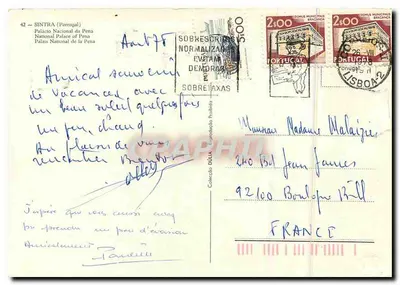 42 - SINTRA (Portugal)
Palácio Nacional da Pena
National Palace of Pena
Palais National de la Pena
Août 78
SOBRESCRITOS
NORMALIZADOS
EVITAM
DEMORAS
SOBRETAXAS
5$00
2$00
PORTUGAL
2$00
PORTUGAL
LISBOA-2
Amical souvenir
de vacances avec
un beau soleil quelquefois
un peu chaud.
Au plaisir de vous
rencontrer Bientôt
J'espère que vous aussi
prendre un peu d'évasion
Amicalement
Colecção DÚLIA
CPARAMA
Monsieur Madame Malaizier
240 Bd Jean Jaures
92100 Boulogne Bill
FRANCE